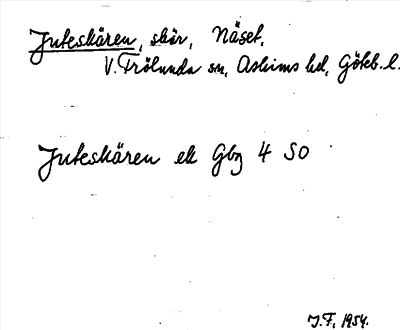 Juteskären, skär, Näset,
V. Frölunda sn, Askims hd, Göteb. l.
Juteskären ek Gbg 4 SO
J.F. 1954.